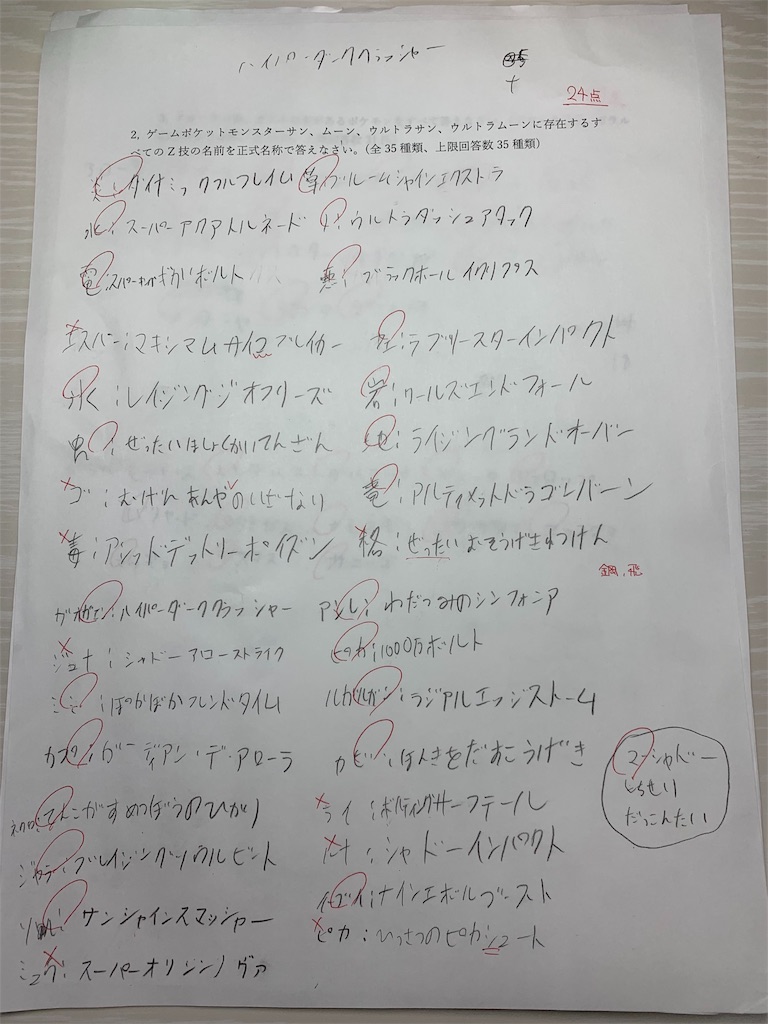 ハイパーダーククラッシャー
24点
2, ゲームポケットモンスターサン、ムーン、ウルトラサン、ウルトラムーンに存在するす
べてのZ技の名前を正式名称で答えなさい。(全35種類、上限回答数35種類)
炎:ダイナミックフルフレイム 草:ブルームシャインエクストラ
水:スーパーアクアトルネード ノ:ウルトラダッシュアタック
電:スパーキングギガボルト 悪:ブラックホールイクリプス
エスパー:マキシマムサイコブレイカー 妖:ラブリースターインパクト
氷:レイジングジオフリーズ 岩:ワールズエンドフォール
虫:ぜったいほしょくかいてんざん 地:ライジングランドオーバー
ゴ:むげんあんやのいざない 竜:アルティメットドラゴンバーン
毒:アシッドデットリーポイズン 格:ぜったいむそうげきれつけん
鋼,飛
ガオガエン:ハイパーダーククラッシャー アシレ:わだつみのシンフォニア
ジュナ:シャドーアローストライク ピカ:1000万ボルト
ミミ:ぽかぼかフレンドタイム ルガルガン:ラジアルエッジストーム
カプ:ガーディアン・デ・アローラ カビ:ほんきをだすこうげき
マーシャドー
しちせい
だっこんたい
ネクロ:てんこがすめつぼうのひかり ライ:ボルティングサーフテール
ジャラ:ブレイジングソウルビート ルナ:シャドーインパクト
イーブイ:ナインエボルブースト
ソル:サンシャインスマッシャー ピカ:ひっさつのピカシュート
ミュウ:スーパーオリジンノヴァ